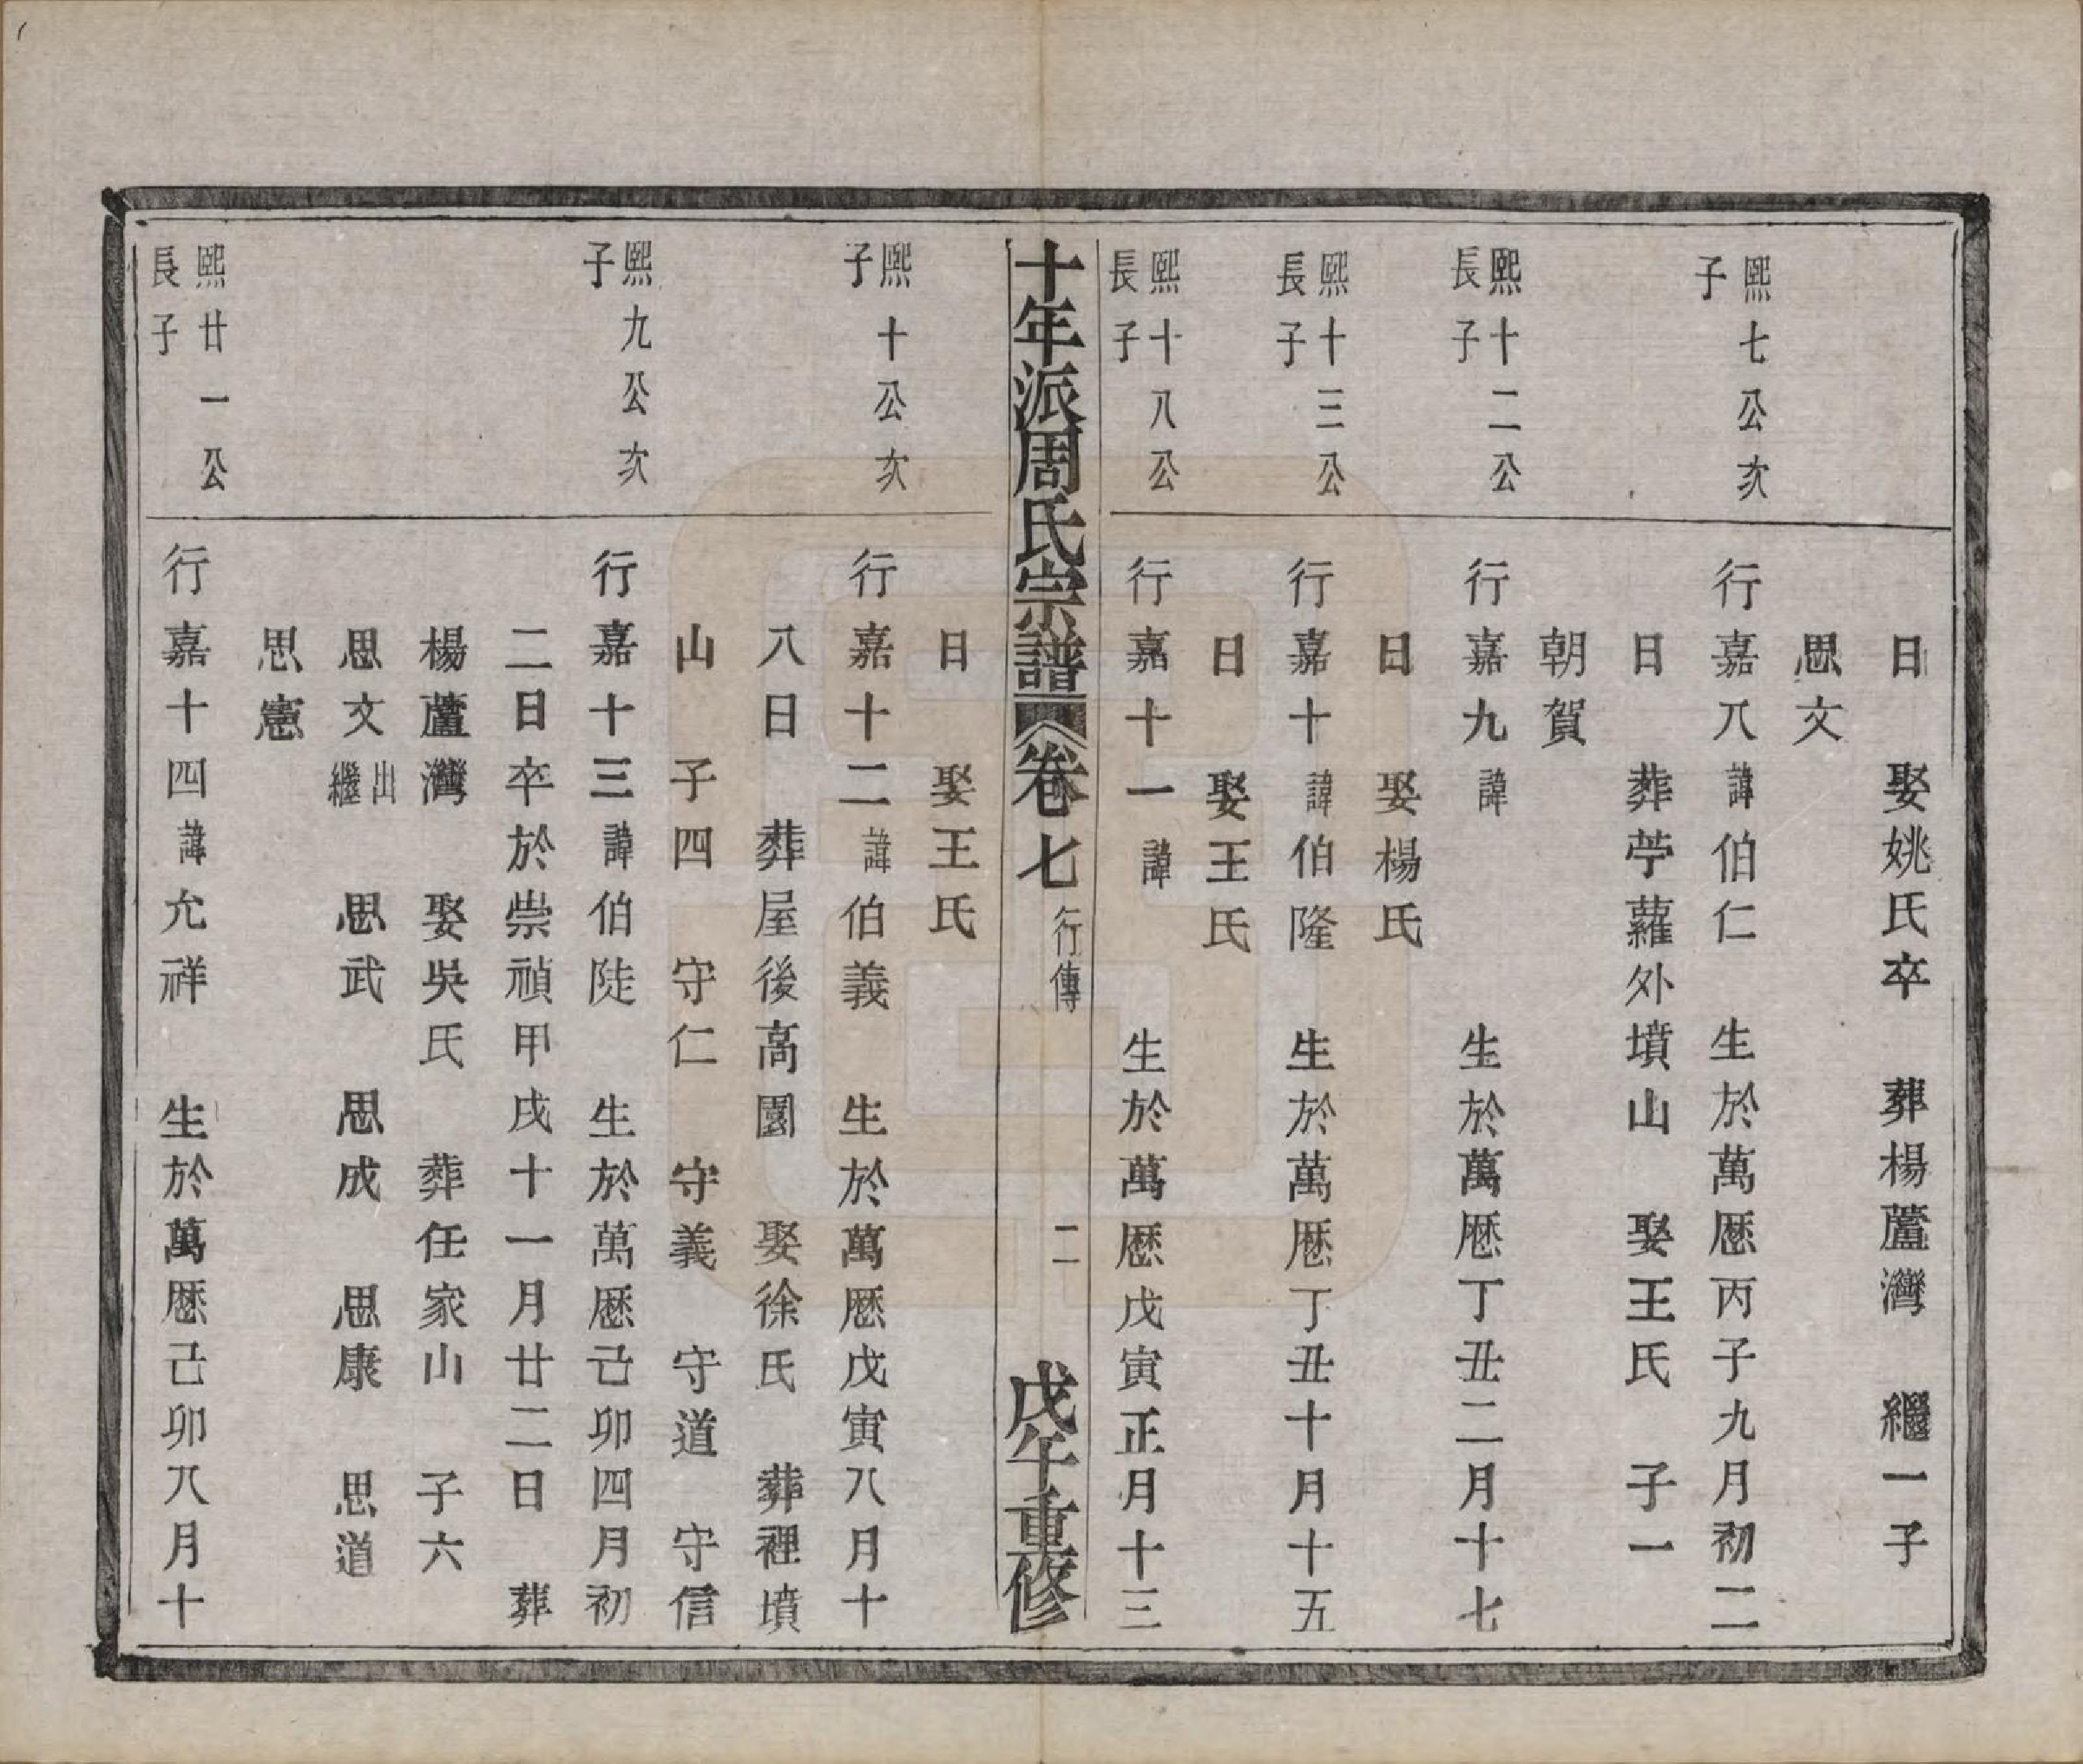 日　娶姚氏卒　葬楊蘆灣　繼一子
思文
熙七公次子
行嘉八諱伯仁　生於萬厯丙子九月初二
日　葬苧蘿外墳山　娶王氏　子一
朝賀
熙十二公長子
行嘉九諱　生於萬厯丁丑二月十七
日　娶楊氏
熙十三公長子
行嘉十諱伯隆　生於萬厯丁丑十月十五
日　娶王氏
熙十八公長子
行嘉十一諱　生於萬厯戊寅正月十三
十年派周氏宗譜　卷七　行傳　二　戊午重修
日　娶王氏
熙十公次子
行嘉十二諱伯義　生於萬厯戊寅八月十
八日　葬屋後高園　娶徐氏　葬裡墳
山　子四　守仁　守義　守道　守信
熙九公次子
行嘉十三諱伯陡　生於萬厯己卯四月初
二日卒於崇禎甲戌十一月廿二日　葬
楊蘆灣　娶吳氏　葬任家山　子六
思文出繼　思武　思成　思康　思道
思憲
熙廿一公長子
行嘉十四諱允祥　生於萬厯己卯八月十